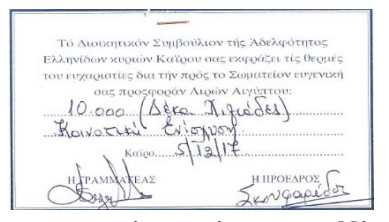 Τό Διοικητικόν Συμβούλιον τής Ἀδελφότητος
Ἑλληνίδων κυριών Καΐρου σας εκφράζει τίς θερμές
του ευχαριστίες δια τήν πρός το Σωματείον ευγενική
σας προσφοράν Λιρών Αιγύπτου:
10.000 (Δέκα Χιλιάδες)
Κοινοτική Ενίσχυση
Καϊρο 5/12/17
Η ΓΡΑΜΜΑΤΕΑΣ Η ΠΡΟΕΔΡΟΣ